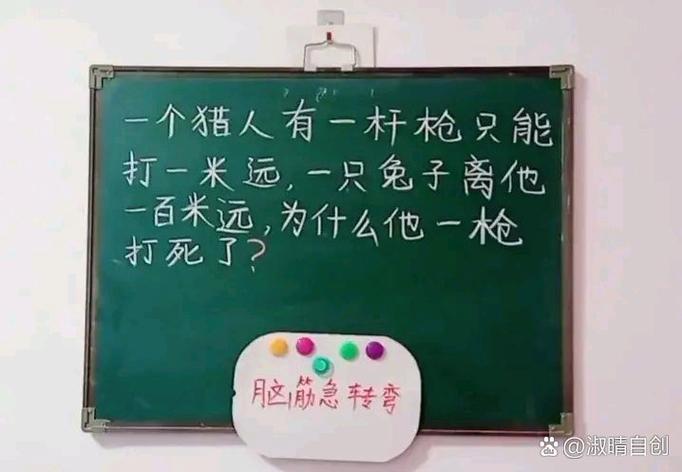 一个猎人有一杆枪只能
打一米远，一只兔子离他
一百米远，为什么他一枪
打死了？
脑筋急转弯
淑晴自创